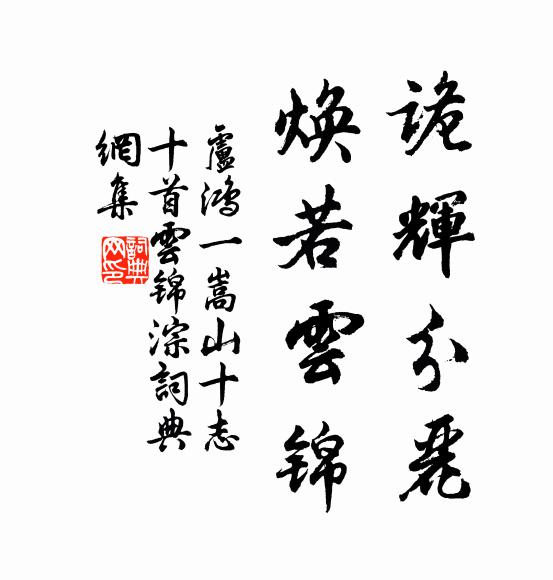 詭輝分麗
煥若雲錦
盧鴻一嵩山十志
十首雲錦淙詞典
網集
詞典網印